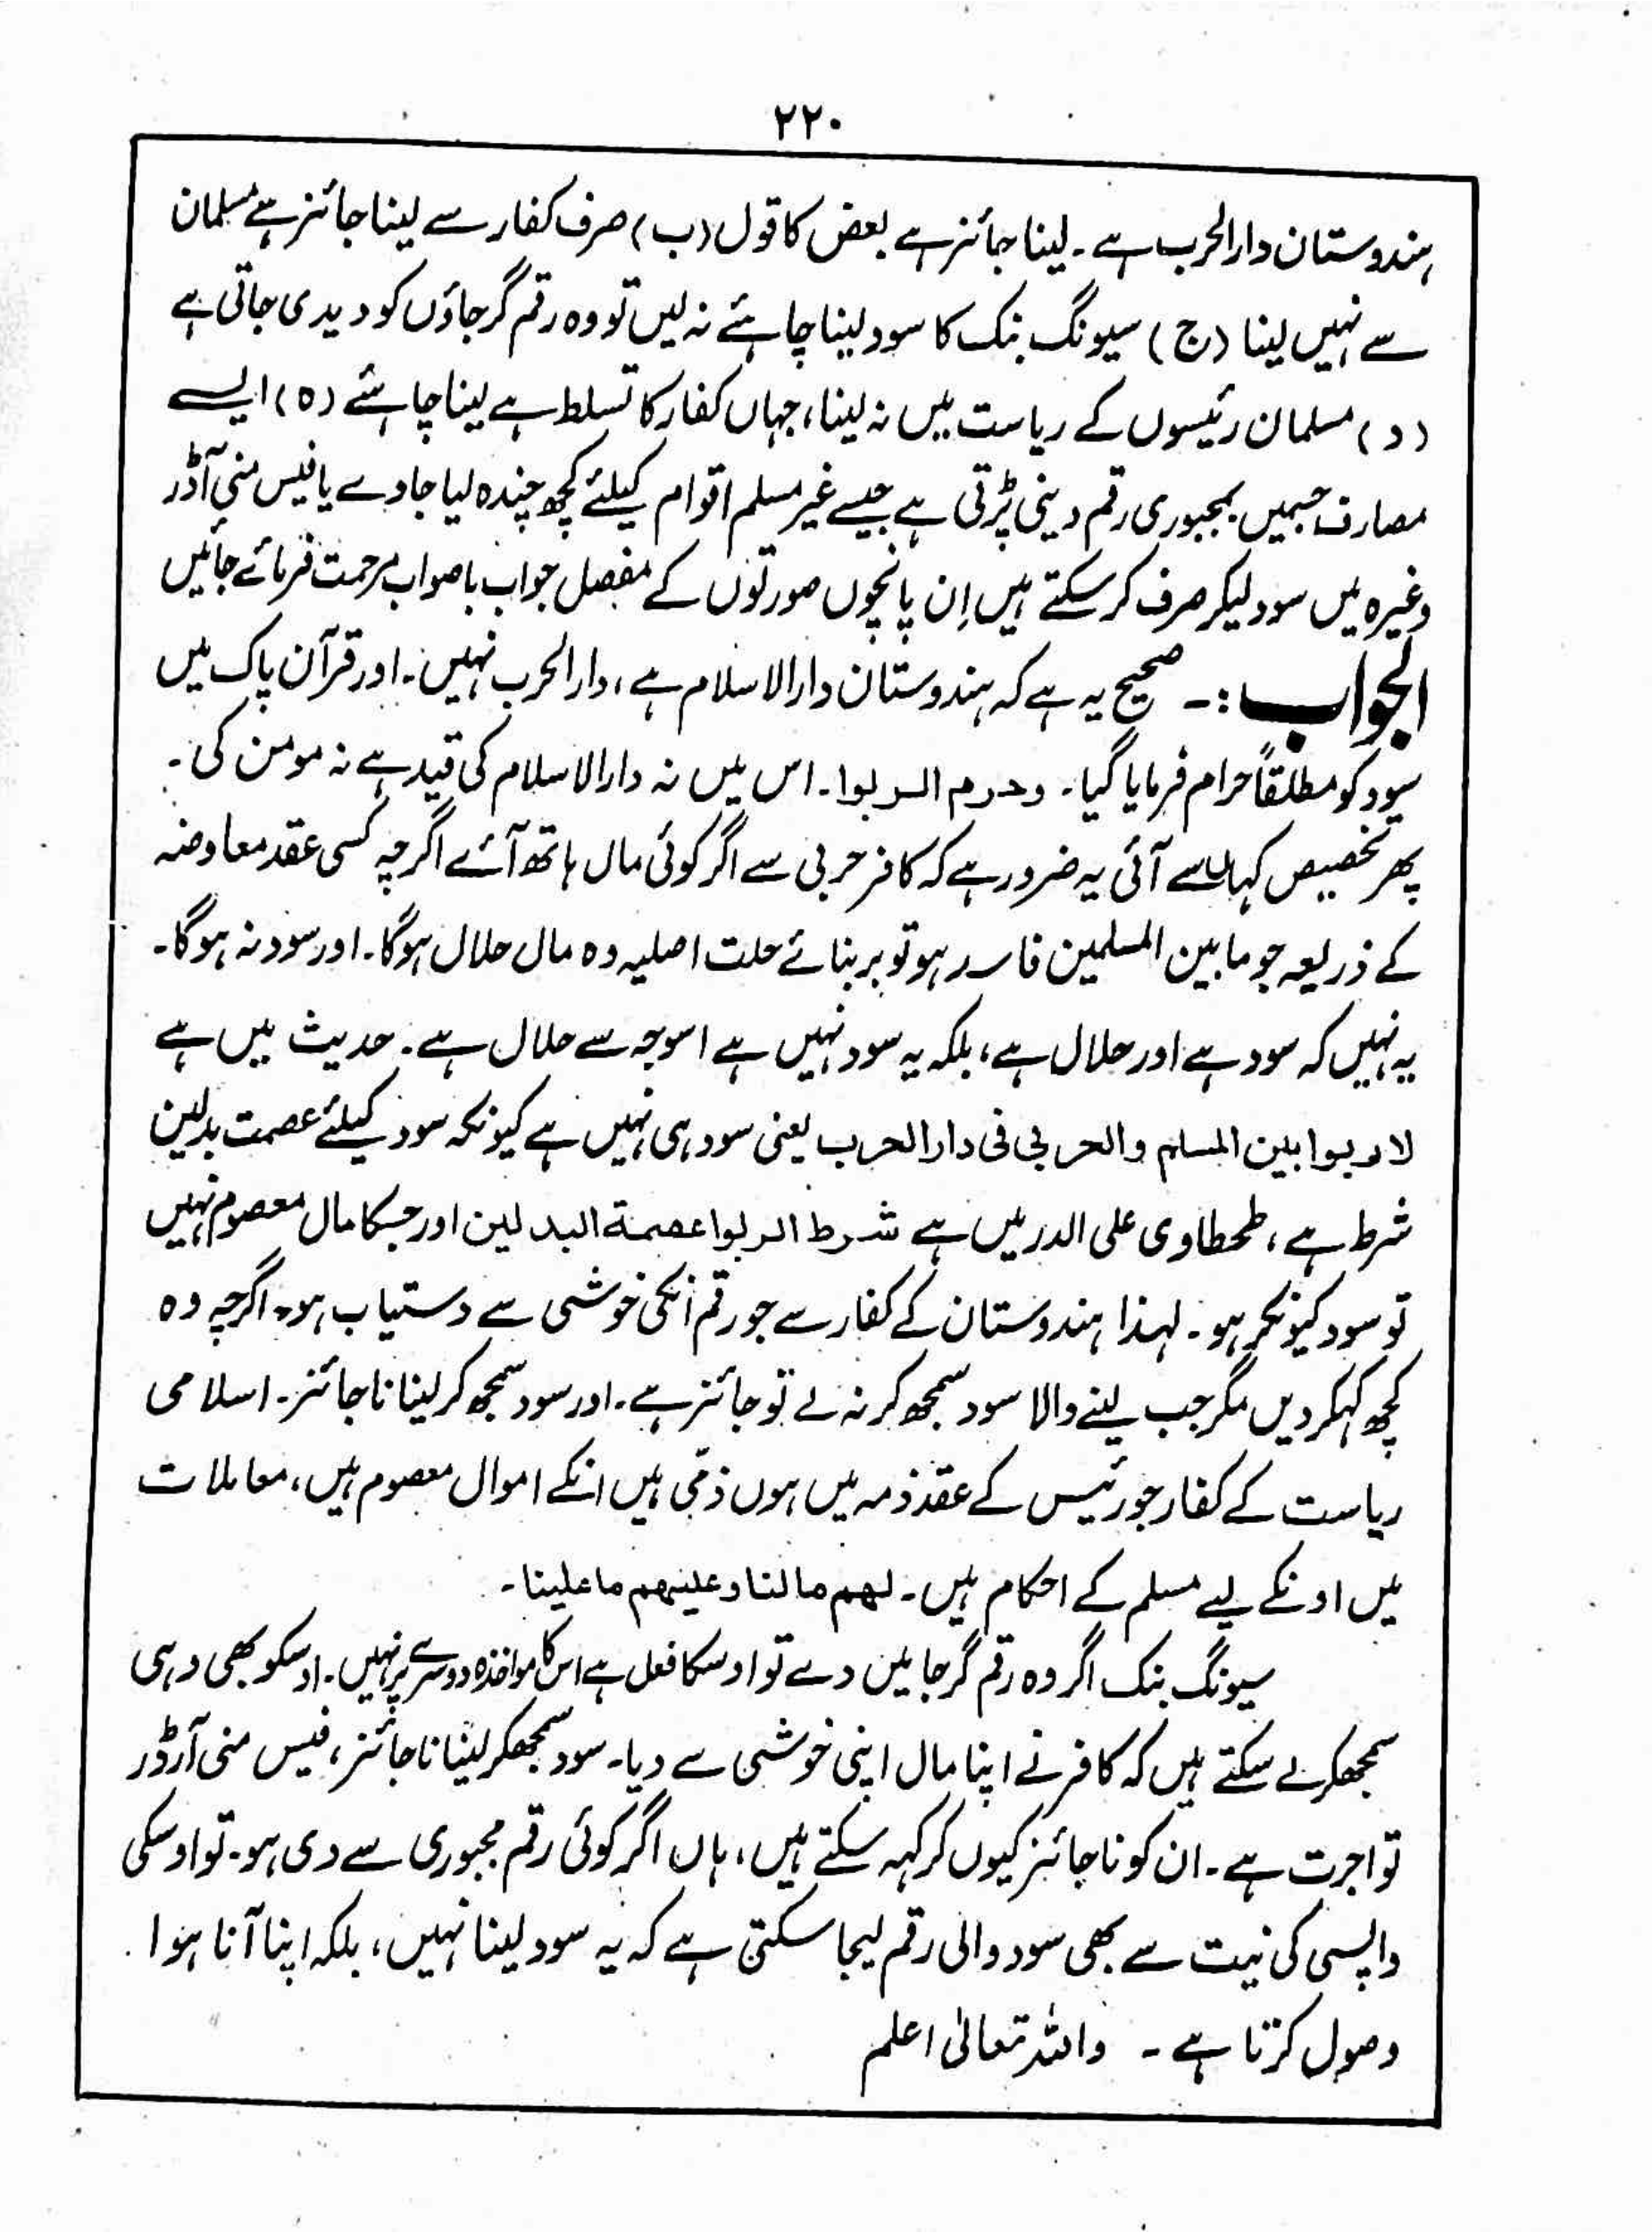 ۲۲۰
ہندوستان دارالحرب ہے ۔ لینا جائز ہے بعض کا قول (ب) صرف کفار سے لینا جائز ہے مسلمان
سے نہیں لینا (ج) سیونگ بنک کا سود لینا چاہئے نہ لیں تو وہ رقم گرجاؤں کو دیدی جاتی ہے
(د) مسلمان رئیسوں کے ریاست میں نہ لینا، جہاں کفار کا تسلط ہے لینا چاہئے (ہ) ایسے
مصارف جسمیں بمجبوری رقم دینی پڑتی ہے جیسے غیر مسلم اقوام کیلئے کچھ چندہ لیا جاوے یا فیس منی آڈر
وغیرہ میں سود لیکر صرف کر سکتے ہیں اِن پانچوں صورتوں کے مفصل جواب باصواب مرحمت فرمائے جائیں
الجواب :۔ صحیح یہ ہے کہ ہندوستان دارالاسلام ہے، دارالحرب نہیں۔ اور قرآن پاک میں
سود کو مطلقاً حرام فرمایا گیا۔ وحرم الربوا۔ اس میں نہ دارالاسلام کی قید ہے نہ مومن کی ۔
پھر تخصیص کہاں سے آئی یہ ضرور ہے کہ کافر حربی سے اگر کوئی مال ہاتھ آئے اگرچہ کسی عقد معاوضہ
کے ذریعہ جو مابین المسلمین فاسد ہو تو بر بنائے حلت اصلیہ وہ مال حلال ہوگا۔ اور سود نہ ہوگا۔
یہ نہیں کہ سود ہے اور حلال ہے، بلکہ یہ سود نہیں ہے اسوجہ سے حلال ہے۔ حدیث میں ہے
لا ربوا بین المسلم والحربی فی دارالحرب یعنی سود ہی نہیں ہے کیونکہ سود کیلئے عصمت بدلین
شرط ہے، طحطاوی علی الدر میں ہے شرط الربوا عصمة البدلین اور جسکا مال معصوم نہیں
تو سود کیونکر ہو۔ لہذا ہندوستان کے کفار سے جو رقم انکی خوشی سے دستیاب ہو۔ اگرچہ وہ
کچھ کہکر دیں مگر جب لینے والا سود سمجھ کر نہ لے تو جائز ہے۔ اور سود سمجھ کر لینا ناجائز۔ اسلامی
ریاست کے کفار جو رئیس کے عقد ذمہ میں ہوں ذمّی ہیں انکے اموال معصوم ہیں، معاملات
میں اونکے لیے مسلم کے احکام ہیں۔ لھم مالنا وعلیھم ما علینا۔
سیونگ بنک اگر وہ رقم گرجا میں دے تو اوسکا فعل ہے اس کا مواخذہ دوسرے پر نہیں۔ اوسکو بھی وہی
سمجھکر لے سکتے ہیں کہ کافر نے اپنا مال اپنی خوشی سے دیا۔ سود سمجھکر لینا ناجائز، فیس منی آرڈر
تو اجرت ہے۔ ان کو ناجائز کیوں کر کہہ سکتے ہیں، ہاں اگر کوئی رقم مجبوری سے دی ہو۔ تو اوسکی
واپسی کی نیت سے بھی سود والی رقم لیجا سکتی ہے کہ یہ سود لینا نہیں، بلکہ اپنا آنا ہوا
وصول کرتا ہے ۔ واللہ تعالیٰ اعلم